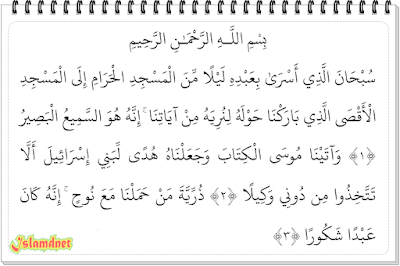 بِسْمِ اللَّـهِ الرَّحْمَـٰنِ الرَّحِيمِ
سُبْحَانَ الَّذِي أَسْرَىٰ بِعَبْدِهِ لَيْلًا مِّنَ الْمَسْجِدِ الْحَرَامِ إِلَى الْمَسْجِدِ
الْأَقْصَى الَّذِي بَارَكْنَا حَوْلَهُ لِنُرِيَهُ مِنْ آيَاتِنَا ۚ إِنَّهُ هُوَ السَّمِيعُ الْبَصِيرُ
﴿١﴾ وَآتَيْنَا مُوسَى الْكِتَابَ وَجَعَلْنَاهُ هُدًى لِّبَنِي إِسْرَائِيلَ أَلَّا
تَتَّخِذُوا مِن دُونِي وَكِيلًا ﴿٢﴾ ذُرِّيَّةَ مَنْ حَمَلْنَا مَعَ نُوحٍ ۚ إِنَّهُ كَانَ
عَبْدًا شَكُورًا ﴿٣﴾
islamdnet